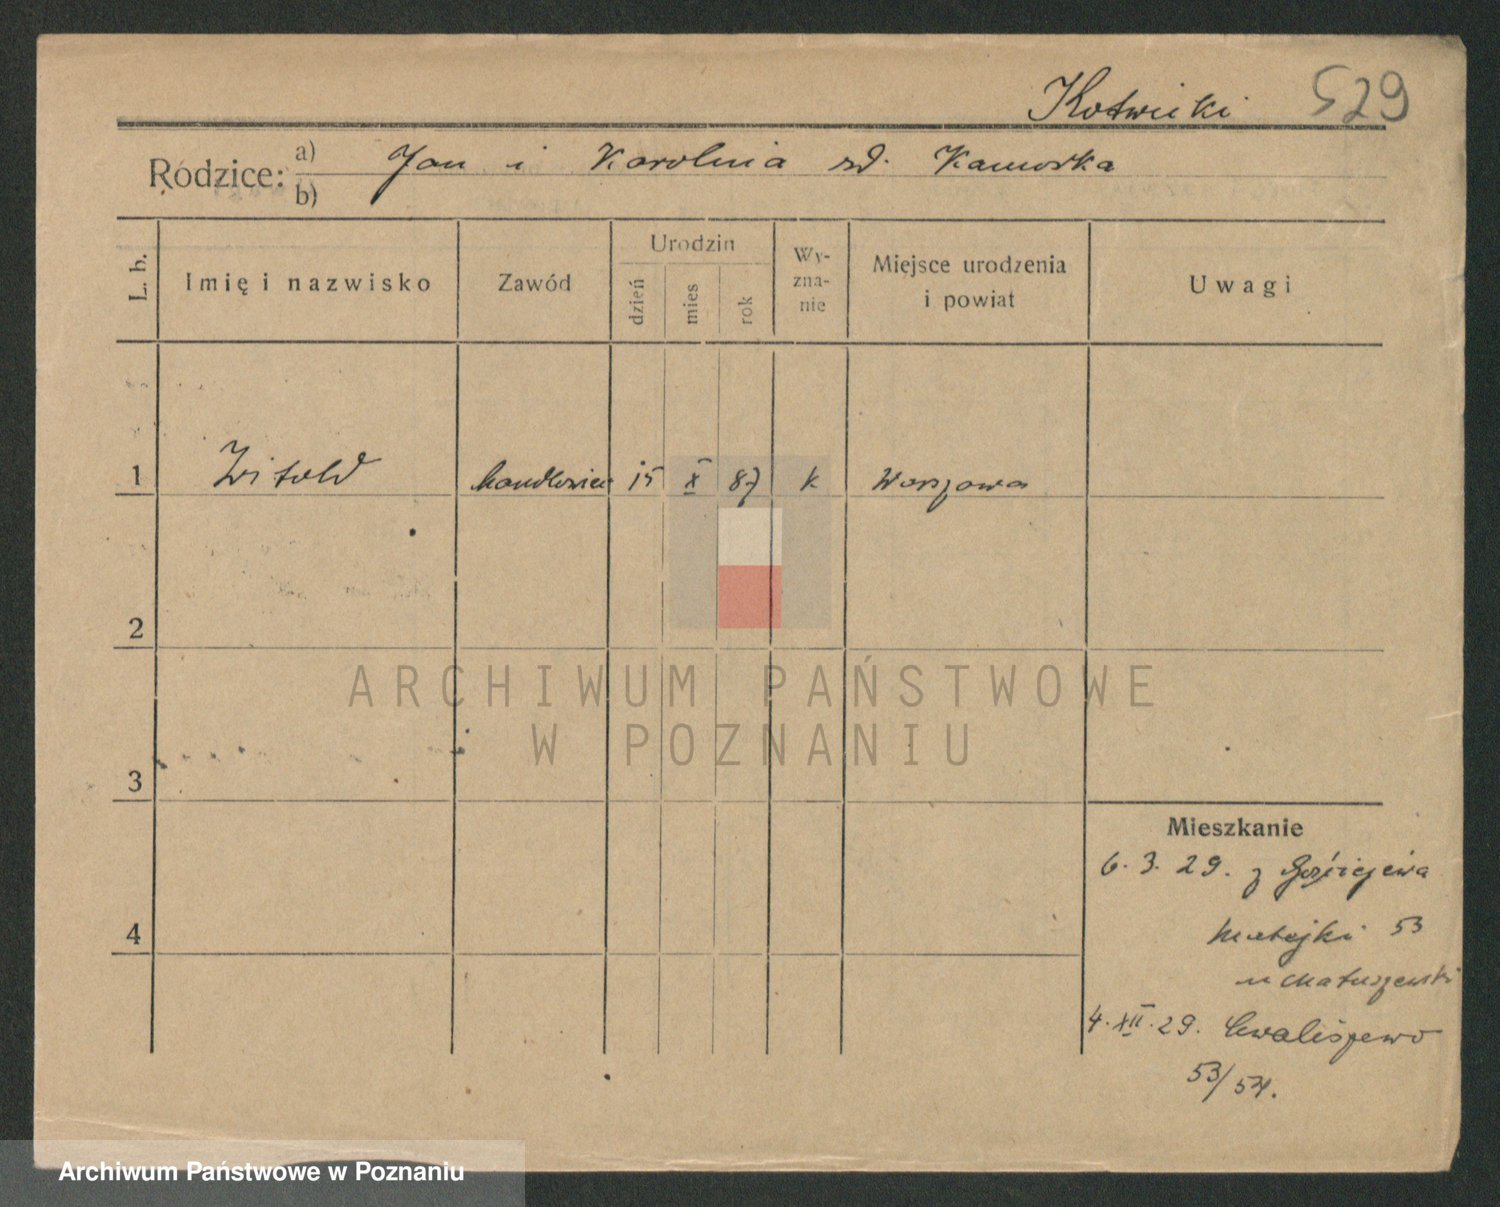 Kotwicki 529
Rodzice: a) Jan i Karolina zd. Kamoska
b)
L. b. Imię i nazwisko Zawód Urodzin dzień mies rok Wy-zna-nie Miejsce urodzenia i powiat Uwagi
1 Witold handlowiec 15 X 87 k Warszawa
2
3
4
Mieszkanie
6. 3. 29. z
Matejki 53
u Matuszewski
4. XII. 29. Chwaliszewo
53/54.
ARCHIWUM PAŃSTWOWE
W POZNANIU
Archiwum Państwowe w Poznaniu